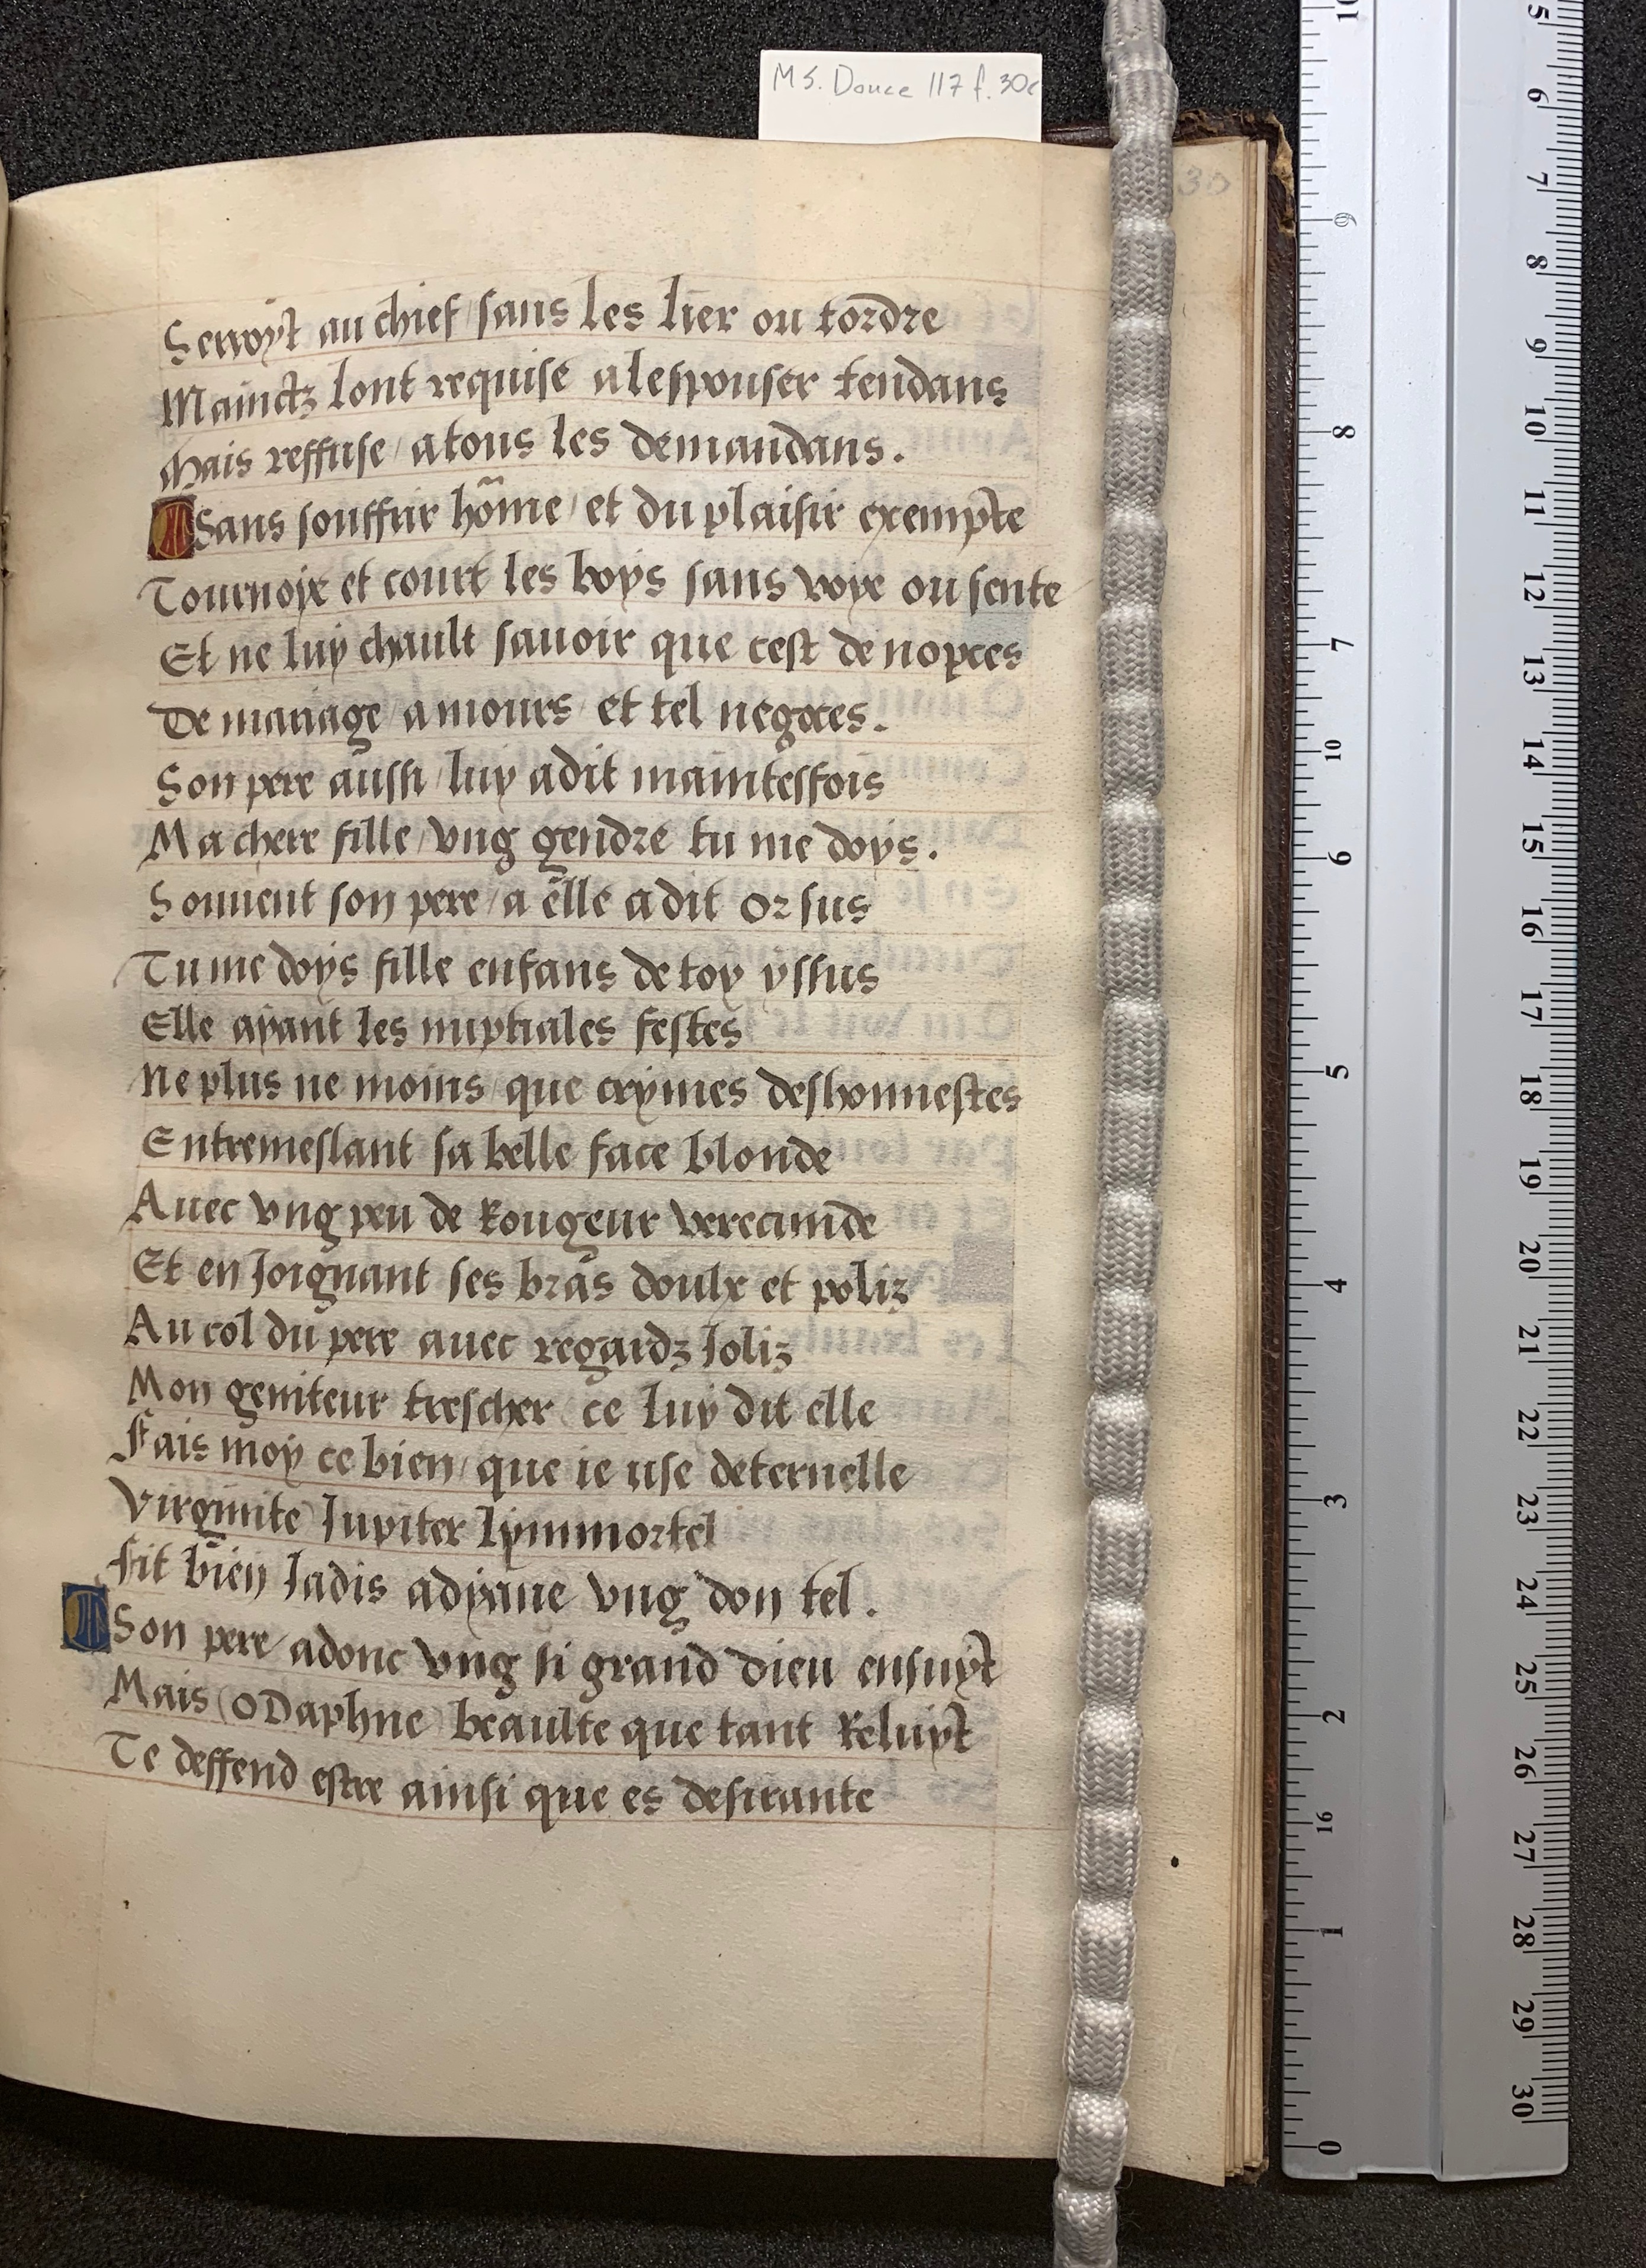 MS. Douce 117 f. 30r
30
Serroyt au chief / sans les lier ou tordre
Mainctz lont requise alespouser tendans
Mais reffuse / atous les demandans.
Sans souffrir hõme / et du plaisir exempte
Tournoye et court les boys sans voye ou sente
Et ne luy chault sauoir que cest de nopces
De mariage / amours et tel negoces.
Son pere aussi / luy adit maintesfois
Ma chere fille / vng gendre tu me doys.
Souuent son pere / a elle adit Or sus
Tu me doys fille enfans de toy yssus
Elle ayant les nuptiales festes
Ne plus ne moins / que crymes deshonnestes
Entremeslant sa belle face blonde
Auec vng peu de Rougeur verecunde
Et en Joignant ses bras doulx et poliz
Au col du pere auec regardz Joliz
Mon geniteur trescher ce luy dit elle
Fais moy ce bien / que ie use deternelle
Virginite Jupiter Lymmortel
Fit bien Jadis adyane vng don tel.
Son pere / adonc vng si grand dieu ensuyt
Mais (O Daphne) beaulte que tant Reluyt
Te deffend estre ainsi que es desirante